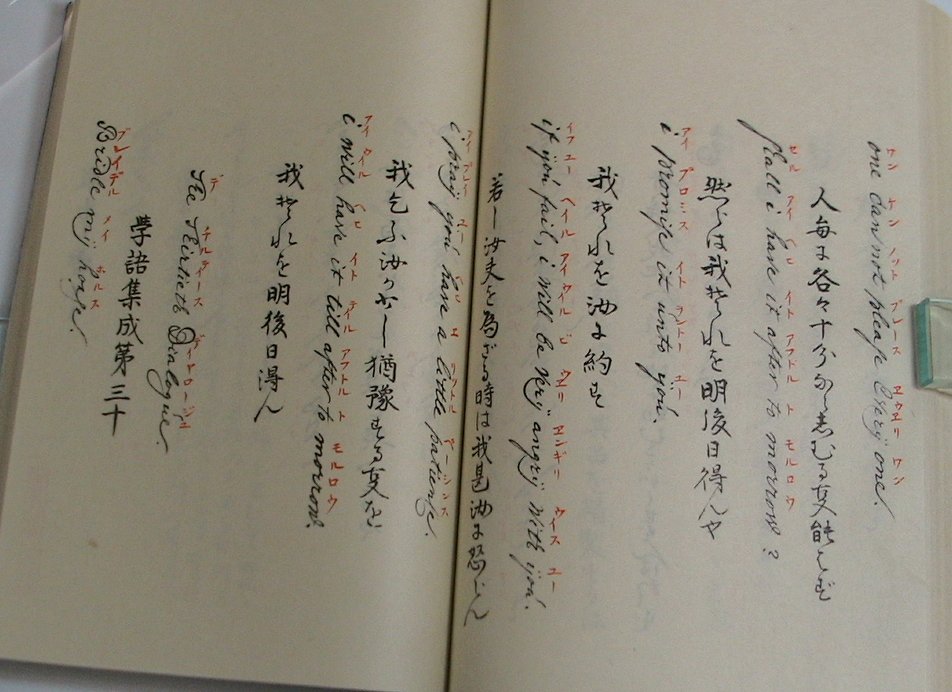 ワン ケン
one can not pleaſe every one.
人毎に各々十分ならしむる事能はず
セル アイ ヘヒ イト アフトル ト モルロウ
ſhall i have it after to morrow?
然らば我それを明後日得んや
アイ プロミス イト ヲントリ ユー
i promiſe it unto you.
我それを汝に約す
イフ ユー ヘイル アイ ウイル ビ ウェリ エンギリ ウイス ユー
if you fail, i will be very angry with you.
若し汝夫を為ざる時は我甚汝に怒らん
アイ プレイ ユー ヘヒ エ リツトル ペーシンス
i pray you have a little patience.
我乞ふ汝少し猶豫する事を
アイ ウイル ヘヒ イト テイル アフトル ト モルロウ
i will have it till after to morrow.
我それを明後日得ん
デ チルティース ディヤロージュ
The Thirtieth Dialogue.
學語集成第三十
ブレイデル メイ ホルス
Bridle my horse.